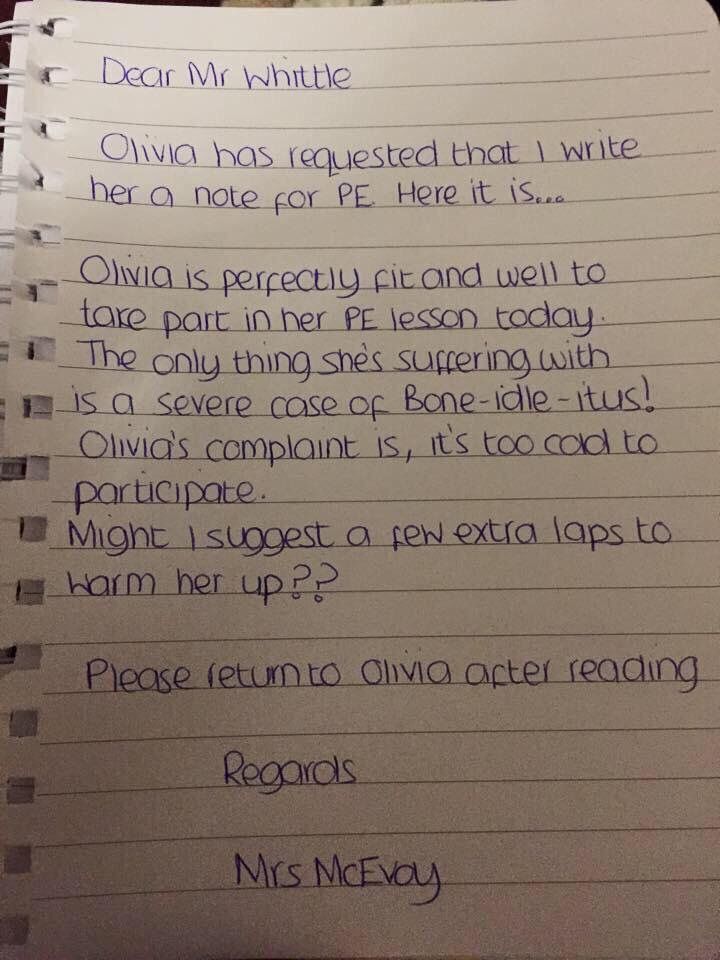 Dear Mr Whittle
Olivia has requested that I write
her a note for PE. Here it is...
Olivia is perfectly fit and well to
take part in her PE lesson today.
The only thing she's suffering with
is a severe case of Bone-idle-itus!
Olivia's complaint is, it's too cold to
participate.
Might I suggest a few extra laps to
warm her up??
Please return to Olivia after reading
Regards
Mrs McEvoy